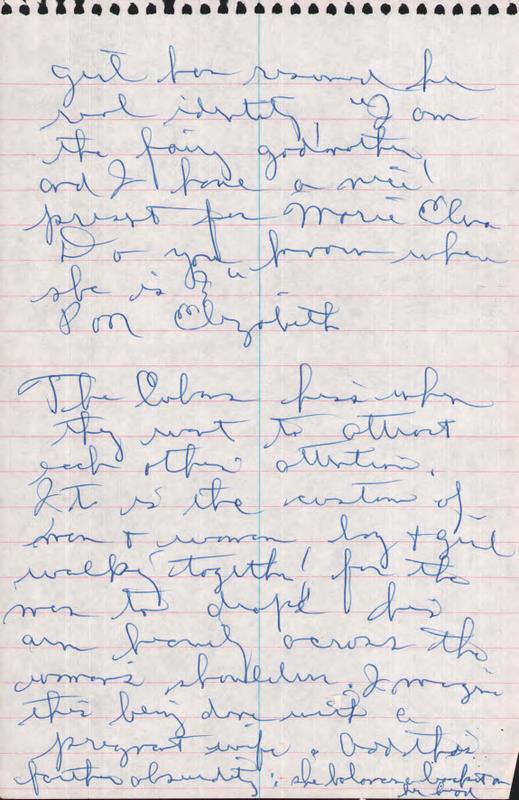 girl has resumed her
real identity, "I am
the fairy godmother,
and I have a nice
present for Marie Elva
Do you know where
she is?"
Poor Elizabeth
The Cubans hiss when
they want to attract
each others attention.
It is the custom of
man + woman boy + girl
walking together for the
man to drape his
arm heavily across the
woman's shoulder. I imagine
this being done with a
pregnant wife. Add this
further absurdity: she balances a basket on
her head